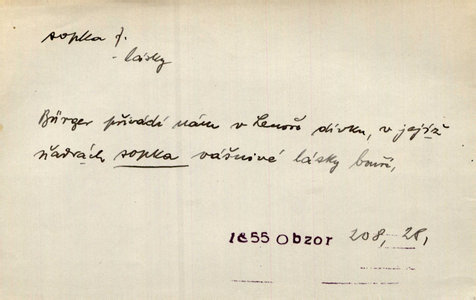 sopka f.
- lásky
Bürger přivádí nám v Lenoře dívku, v jejíž
ňadrách sopka vášnivé lásky bouří,
1855 Obzor 208, 28,